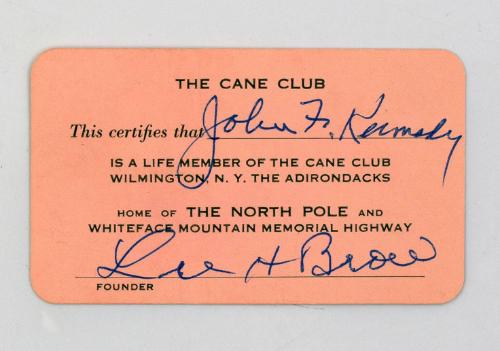 THE CANE CLUB
This certifies that John F. Kennedy
IS A LIFE MEMBER OF THE CANE CLUB
WILMINGTON, N. Y. THE ADIRONDACKS
HOME OF THE NORTH POLE AND
WHITEFACE MOUNTAIN MEMORIAL HIGHWAY
H
FOUNDER